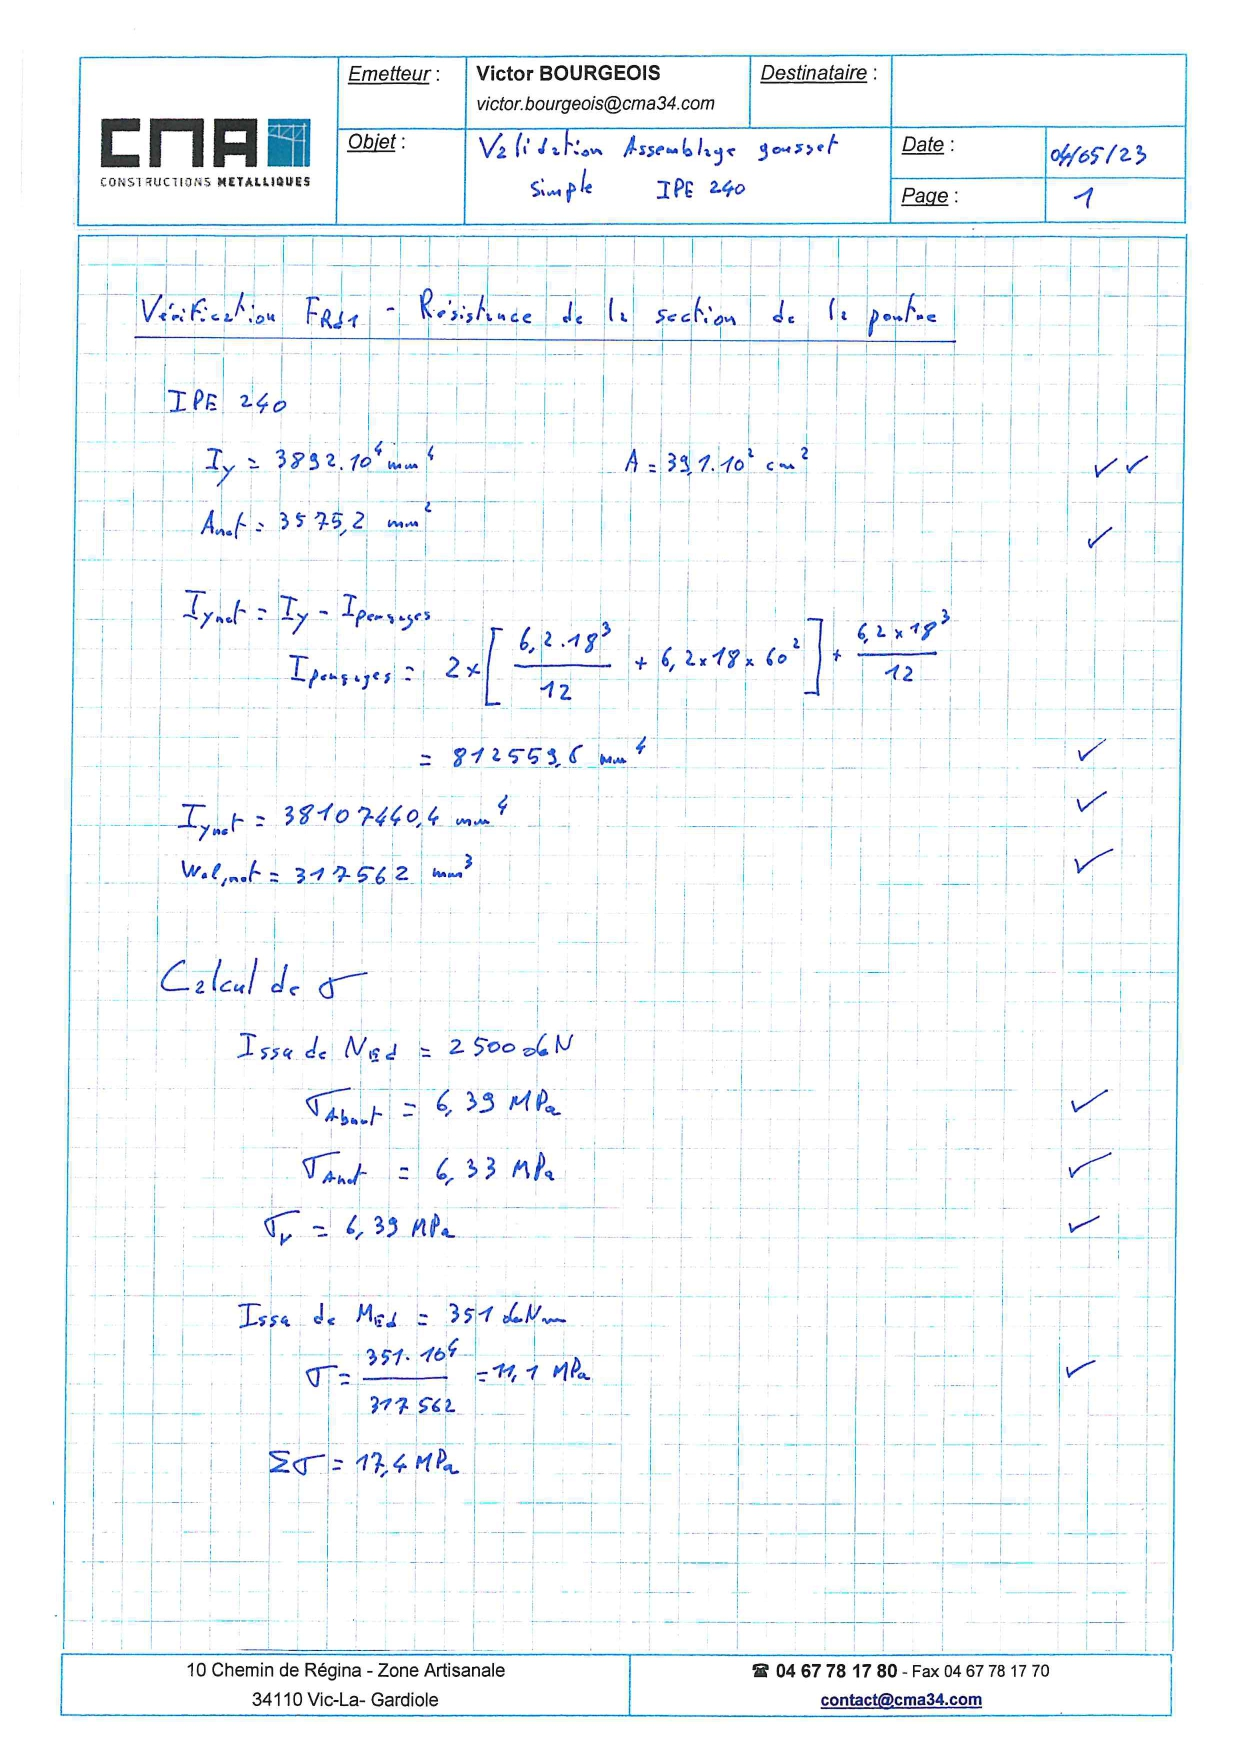 CMA
CONSTRUCTIONS METALLIQUES
Emetteur :
Victor BOURGEOIS
victor.bourgeois@cma34.com
Destinataire :
Objet :
Validation Assemblage gousset
simple IPE 240
Date :
04/05/23
Page :
1
Vérification FRd1 - Résistance de la section de la poutre
IPE 240
Iy = 3892.10⁴ mm⁴ A = 39,1.10² cm² ✓✓
Anet = 3575,2 mm² ✓
Iynet = Iy - Iperçages
Iperçages = 2x[ 6,2.18³ / 12 + 6,2x18x60² ] + 6,2x18³ / 12
= 812559,6 mm⁴ ✓
Iynet = 38107440,4 mm⁴ ✓
Wel,net = 317562 mm³ ✓
Calcul de σ
Issu de NEd = 2500 daN
σAbrut = 6,39 MPa ✓
σAnet = 6,33 MPa ✓
σN = 6,39 MPa ✓
Issu de MEd = 351 daNm
σ = 351.10⁴ / 317562 = 11,1 MPa ✓
Σσ = 17,4 MPa
10 Chemin de Régina - Zone Artisanale
34110 Vic-La- Gardiole
☎ 04 67 78 17 80 - Fax 04 67 78 17 70
contact@cma34.com